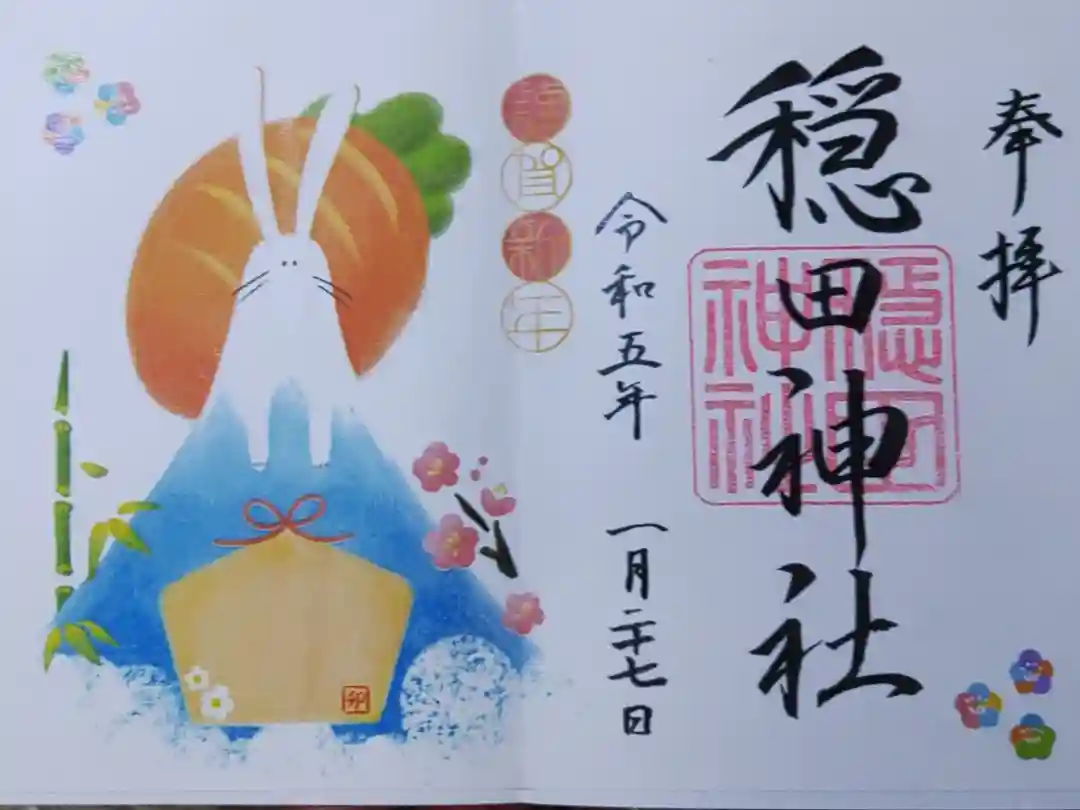 奉拝
穏田神社
穏田神社
令和五年 一月二十七日
謹賀新年
卯